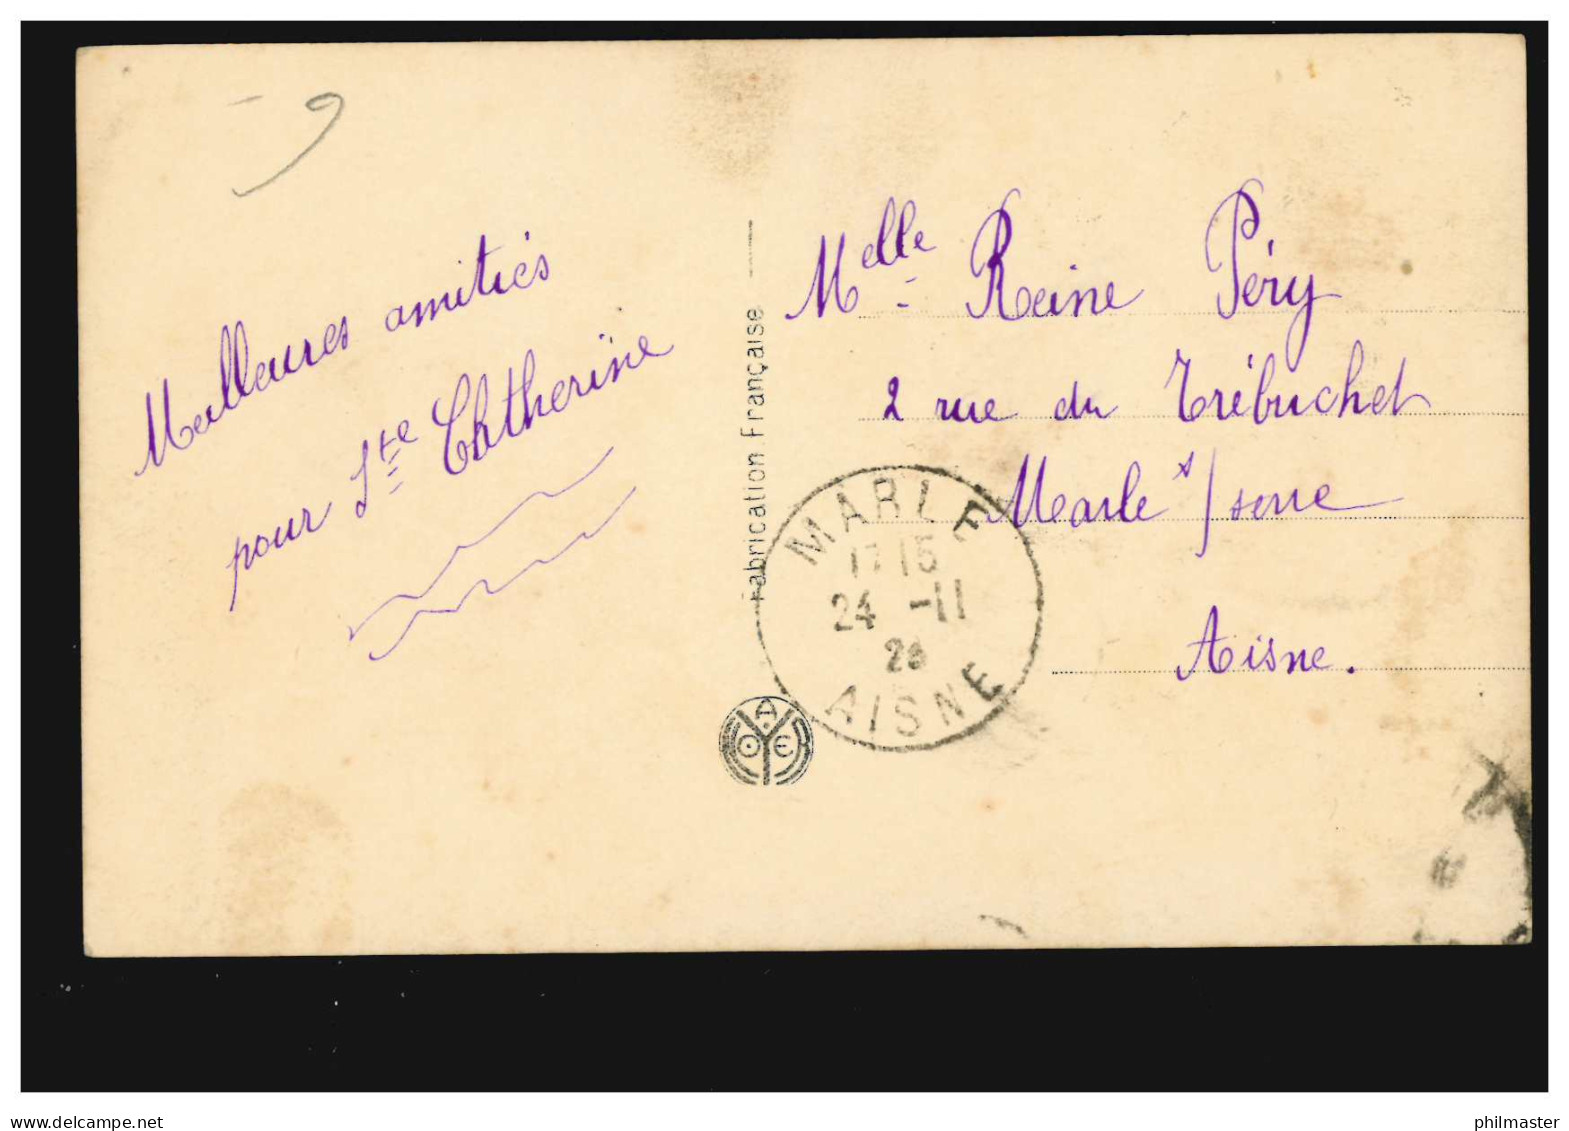 9
Meilleures amitiés
pour Ste Chtherine
Fabrication Française
Melle Reine Péry
2 rue du Trébuchet
Marle s/ serre
Aisne.
MARLE
17 15
24 -11
AISNE
A
O Y E
delcampe.net
philmaster